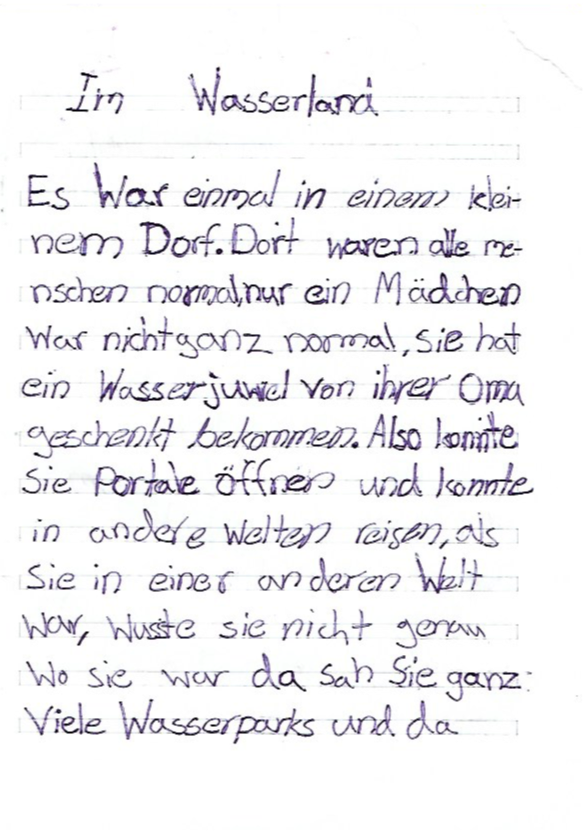 Im Wasserland
Es War einmal in einem klei-
nem Dorf. Dort waren alle me-
nschen normal, nur ein Mädchen
War nicht ganz normal, sie hat
ein Wasserjuwel von ihrer Oma
geschenkt bekommen. Also konnte
Sie Portale öffnen und konnte
in andere Welten reisen, als
Sie in einer anderen Welt
War, Wusste sie nicht genau
Wo sie war da sah Sie ganz
Viele Wasserparks und da